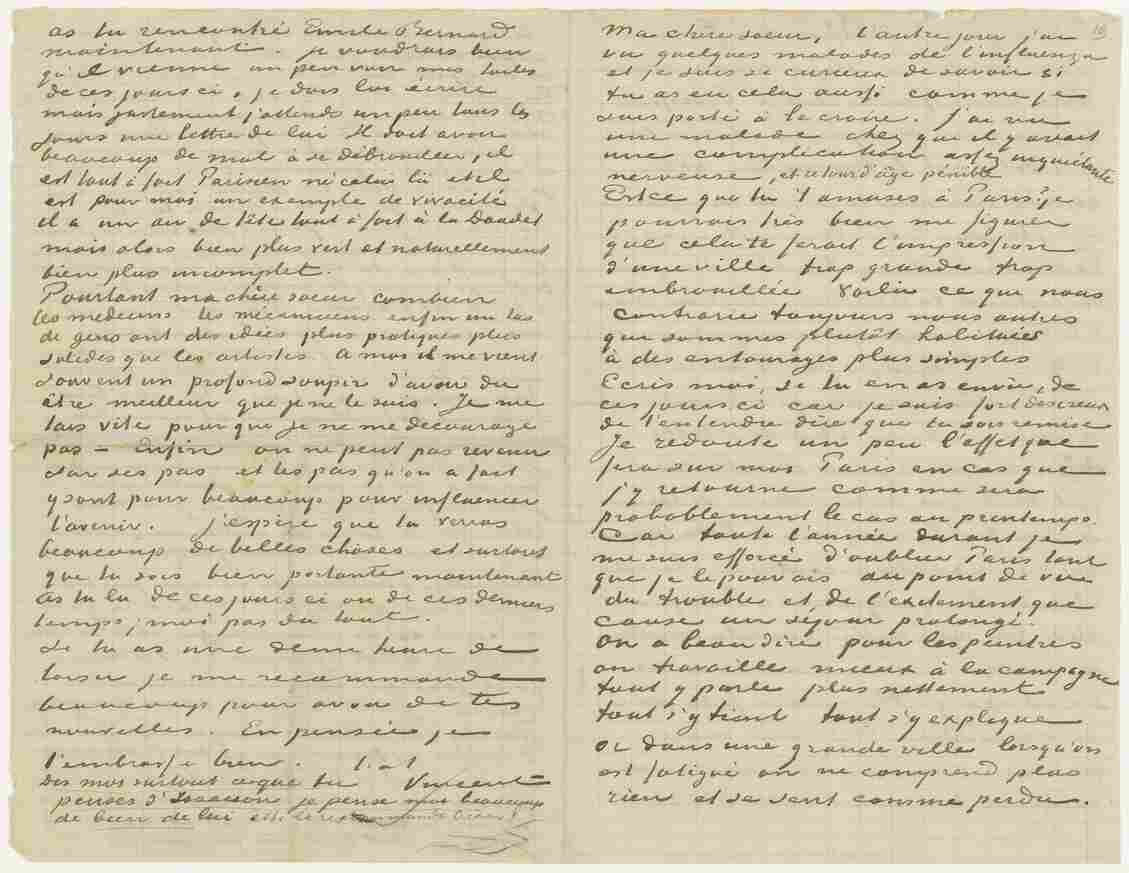 as tu rencontré Emile Bernard
maintenant. je voudrais bien
qu'il vienne un peu voir mes toiles
de ces jours ci, je dois lui écrire
mais justement j'attends un peu tous les
jours une lettre de lui Il doit avoir
beaucoup de mal à se débrouiller, il
est tout à fait Parisien né celui là et il
est pour moi un exemple de vivacité
il a un air de tête tout à fait à la Daudet
mais alors bien plus vert et naturellement
bien plus incomplet.
Pourtant ma chère soeur combien
les medecins les mécaniciens enfin un tas
de gens ont des idées plus pratiques plus
solides que les artistes. A moi il me vient
souvent un profond soupir d'avoir du
être meilleur que je ne le suis. Je me
tais vite pour que je ne me décourage
pas – Enfin on ne peut pas revenir
sur ses pas et les pas qu'on a fait
y sont pour beaucoup pour influencer
l'avenir. j'espère que tu verras
beaucoup de belles choses et surtout
que tu sois bien portante maintenant
as tu lu de ces jours ci ou de ces derniers
temps, moi pas du tout.
Si tu as une demi heure de
loisir je me recommande
beaucoup pour avoir de tes
nouvelles. En pensée je
t'embrasse bien. t. à t
Dis moi surtout ce que tu Vincent
penses d'Isaacson je pense moi beaucoup
de bien de lui
Ma chère soeur, l'autre jour j'ai
vu quelques malades de l'influenza
et je suis si curieux de savoir si
tu as eu cela aussi comme je
suis porté à le croire. J'ai vu
une malade chez qui il y avait
une complication assez inquiétante
nerveuse, et retour d'âge pénible
Est ce que tu t'amuses à Paris, je
pourrais très bien me figurer
que cela te ferait l'impression
d'une ville trop grande trop
embrouillée Voilà ce que nous
contrarie toujours nous autres
qui sommes plutôt habitués
à des entourages plus simples
Ecris moi, si tu en as envie, de
ces jours ci car je suis fort desireux
de t'entendre dire que tu sois remise
Je redoute un peu l'effet que
fera sur moi Paris en cas que
j'y retourne comme sera
probablement le cas au printemps.
Car toute l'année durant je
me suis efforcé d'oublier Paris tant
que je le pouvais au point de vue
du trouble et de l'excitement que
cause un séjour prolongé.
On a beau dire pour les peintres
on travaille mieux à la campagne
tout y parle plus nettement
tout s'y tient tout s'y explique
Or dans une grande ville lorsqu'on
est fatigué on ne comprend plus
rien et se sent comme perdu.